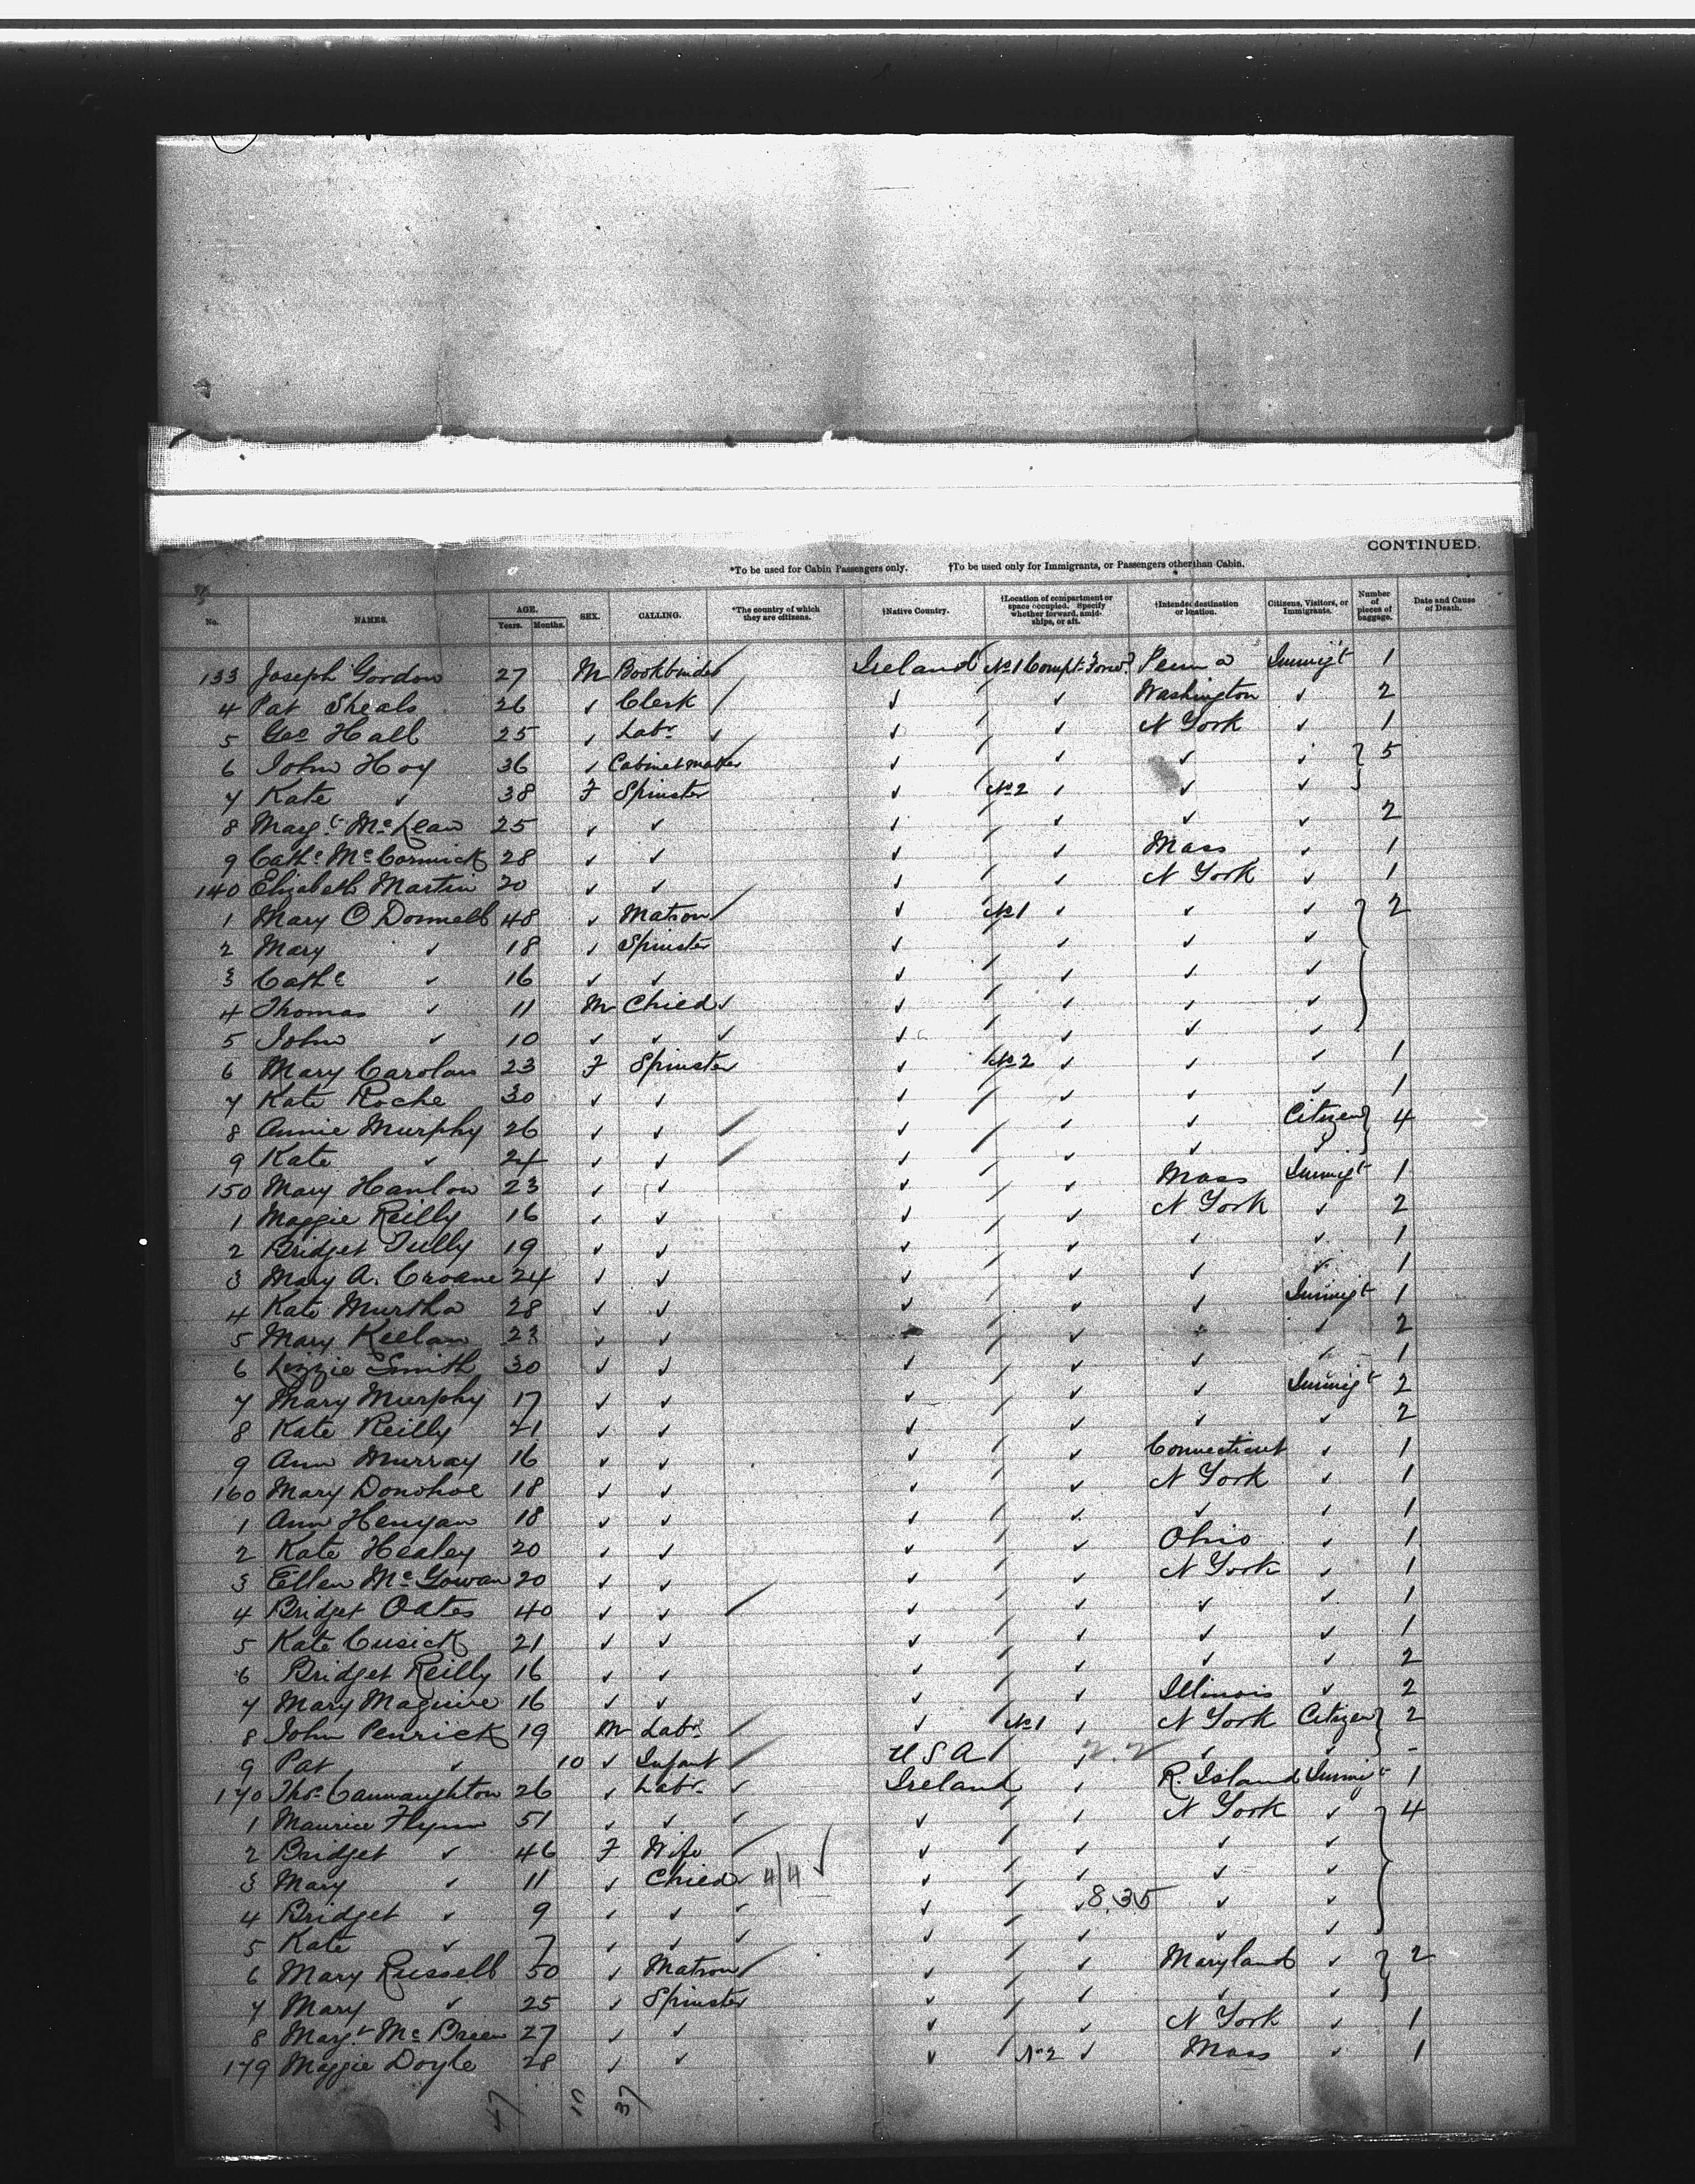 CONTINUED.
*To be used for Cabin Passengers only. †To be used only for Immigrants, or Passengers other than Cabin.
No. NAMES. AGE. Years. Months. SEX. CALLING. *The country of which they are citizens. †Native Country. †Location of compartment or space occupied. Specify whether forward, amidships, or aft. †Intended destination or location. Citizens, Visitors, or Immigrants. Number of pieces of baggage. Date and Cause of Death.
133 Joseph Gordon 27 M Bookbinder Ireland No 1 Compt. Forwd Penn a Immigt 1
4 Pat Sheals 26 ✓ Clerk ✓ ✓ Washington ✓ 2
5 Geo Hall 25 ✓ Labr ✓ ✓ ✓ N York ✓ 1
6 John Hoy 36 ✓ Cabinetmaker ✓ ✓ ✓ ✓ } 5
7 Kate ✓ 38 F Spinster ✓ No 2 ✓ ✓ ✓
8 Margt McLean 25 ✓ ✓ ✓ ✓ ✓ ✓ 2
9 Cathe McCormick 28 ✓ ✓ ✓ ✓ Mass ✓ 1
140 Elizabeth Martin 20 ✓ ✓ ✓ ✓ N York ✓ 1
1 Mary O Donnell 48 ✓ Matron ✓ No 1 ✓ ✓ ✓ } 2
2 Mary ✓ 18 ✓ Spinster ✓ ✓ ✓ ✓
3 Cathe ✓ 16 ✓ ✓ ✓ ✓ ✓ ✓
4 Thomas ✓ 11 M Child ✓ ✓ ✓ ✓ ✓
5 John ✓ 10 ✓ ✓ ✓ ✓ ✓ ✓ ✓
6 Mary Carolan 23 F Spinster ✓ No 2 ✓ ✓ ✓ 1
7 Kate Roche 30 ✓ ✓ ✓ ✓ ✓ ✓ 1
8 Annie Murphy 26 ✓ ✓ ✓ ✓ ✓ Citizen } 4
9 Kate ✓ 24 ✓ ✓ ✓ ✓ ✓ ✓
150 Mary Hanlon 23 ✓ ✓ ✓ ✓ Mass Immigt 1
1 Maggie Reilly 16 ✓ ✓ ✓ ✓ N York ✓ 2
2 Bridget Tully 19 ✓ ✓ ✓ ✓ ✓ ✓ 1
3 Mary A. Croane 24 ✓ ✓ ✓ ✓ ✓ ✓ 1
4 Kate Murtha 28 ✓ ✓ ✓ ✓ ✓ Immigt 1
5 Mary Keelan 23 ✓ ✓ ✓ ✓ ✓ 2
6 Lizzie Smith 30 ✓ ✓ ✓ ✓ ✓ ✓ 1
7 Mary Murphy 17 ✓ ✓ ✓ ✓ ✓ Immigt 2
8 Kate Reilly 21 ✓ ✓ ✓ ✓ ✓ ✓ 2
9 Ann Murray 16 ✓ ✓ ✓ ✓ Connecticut ✓ 1
160 Mary Donohoe 18 ✓ ✓ ✓ ✓ N York ✓ 1
1 Ann Henyan 18 ✓ ✓ ✓ ✓ ✓ ✓ 1
2 Kate Healey 20 ✓ ✓ ✓ ✓ Ohio ✓ 1
3 Ellen McGowan 20 ✓ ✓ ✓ ✓ N York ✓ 1
4 Bridget Oates 40 ✓ ✓ ✓ ✓ ✓ ✓ 1
5 Kate Cusick 21 ✓ ✓ ✓ ✓ ✓ ✓ 1
6 Bridget Reilly 16 ✓ ✓ ✓ ✓ ✓ ✓ 2
7 Mary Maguire 16 ✓ ✓ ✓ ✓ Illinois ✓ 2
8 John Penrick 19 M Labr ✓ No 1 ✓ N York Citizen } 2
9 Pat ✓ 10 ✓ Infant U S A ✓ ✓ ✓ -
170 Thos Cannaughton 26 ✓ Labr ✓ Ireland ✓ R. Island Immigt 1
1 Maurice Flynn 51 ✓ ✓ ✓ ✓ ✓ N York ✓ } 4
2 Bridget ✓ 46 F Wife ✓ ✓ ✓ ✓
3 Mary ✓ 11 ✓ Child 4/4 ✓ ✓ ✓ ✓ ✓
4 Bridget ✓ 9 ✓ ✓ ✓ ✓ ✓ 8.35 ✓ ✓
5 Kate ✓ 7 ✓ ✓ ✓ ✓ ✓ ✓ ✓
6 Mary Russell 50 ✓ Matron ✓ ✓ Maryland ✓ } 2
7 Mary ✓ 25 ✓ Spinster ✓ ✓ ✓ ✓
8 Margt McBreen 27 ✓ ✓ ✓ ✓ N York ✓ 1
179 Maggie Doyle 28 ✓ ✓ ✓ No 2 ✓ Mass ✓ 1
47 10 37